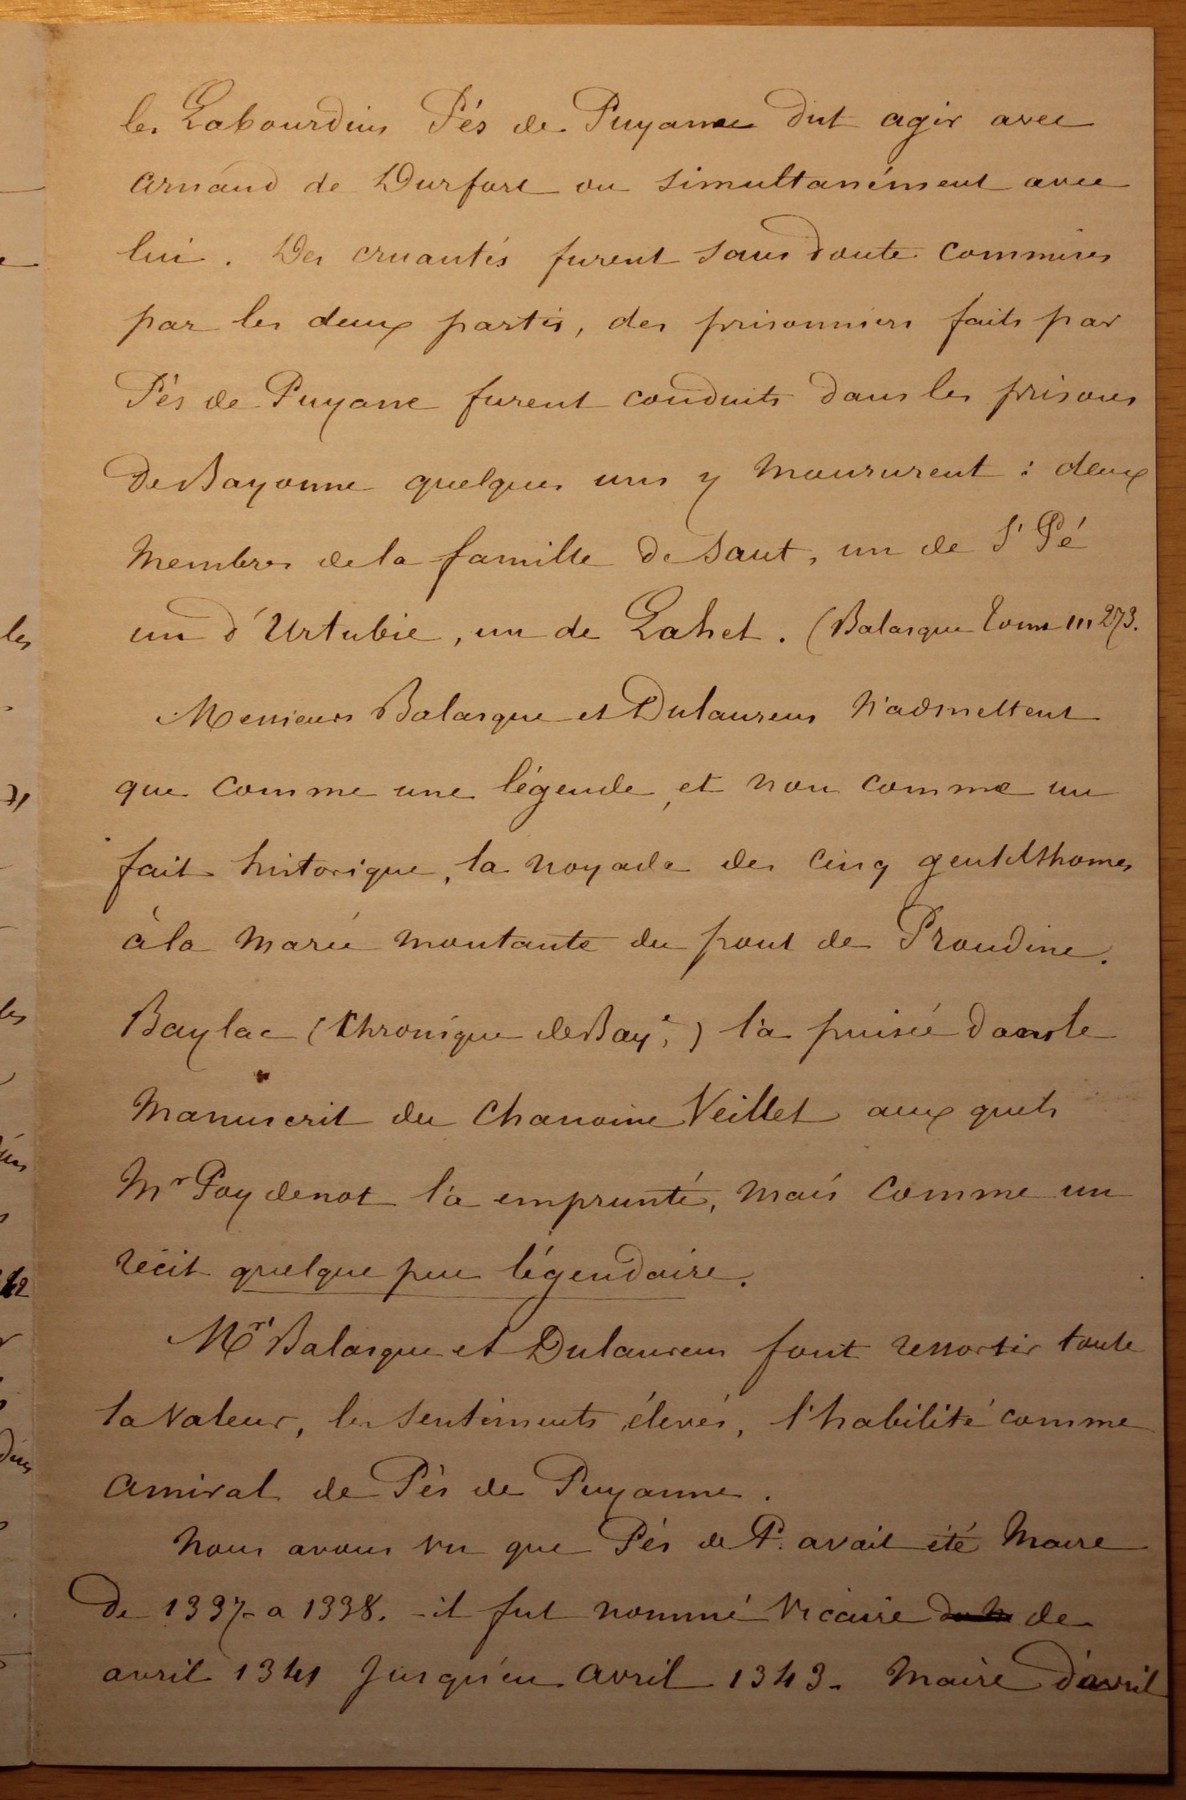 les Labourdins Pés de Puyanne dut agir avec
Arnaud de Durfort ou simultanément avec
lui. Des cruautés furent sans doute commises
par les deux partis, des prisonniers faits par
Pés de Puyane furent conduits dans les prisons
de Bayonne quelques uns y moururent : deux
membres de la famille de Saut, un de St Pé
un d'Urtubie, un de Lahet. (Balasque Tome III 273.
Messieurs Balasque et Dulaurens n'admettent
que comme une légende, et non comme un
fait historique, la noyade des cinq gentilshomes
à la marée montante du pont de Proudine.
Baylac (Chronique de Bay.e) l'a puisée dans le
manuscrit du Chanoine Veillet aux quels
Mr Poydenot l'a emprunté, mais comme un
récit quelque peu légendaire.
Mrs Balasque et Dulaurens font ressortir toute
la valeur, les sentiments élevés, l'habilité comme
amiral de Pés de Puyanne.
Nous avons vu que Pés de P. avait été Maire
de 1337 a 1338. - il fut nommé vicaire de
avril 1341 jusqu'en avril 1343. Maire d'avril
les
71
les
42